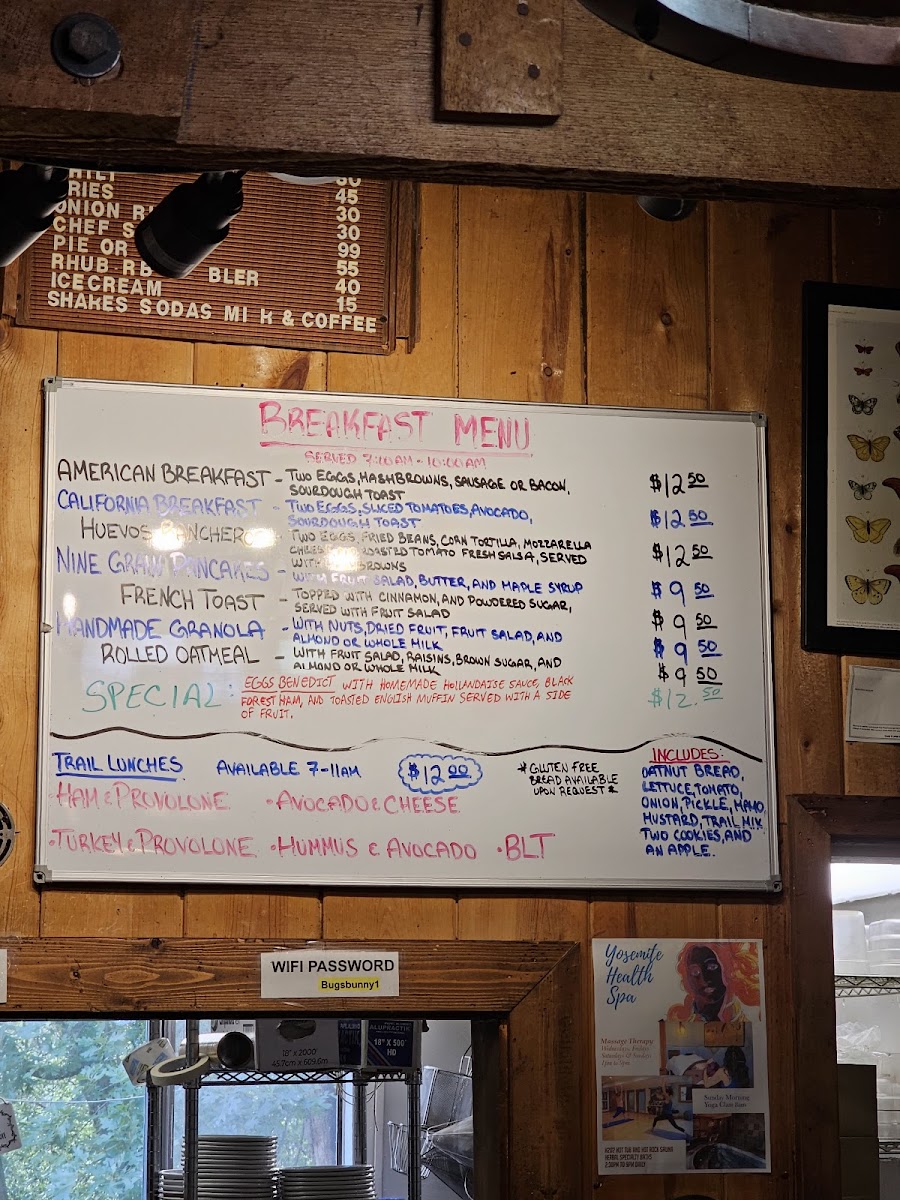 RIES 45
ONION R 30
CHEF S 30
PIE OR 99
RHUB RB BLER 55
ICECREAM 40
SHAKES SODAS MI K & COFFEE 15
BREAKFAST MENU
SERVED 7:00AM - 10:00AM
AMERICAN BREAKFAST - TWO EGGS, HASHBROWNS, SAUSAGE OR BACON, $12.50
SOURDOUGH TOAST
CALIFORNIA BREAKFAST - TWO EGGS, SLICED TOMATOES, AVOCADO, $12.50
SOURDOUGH TOAST
HUEVOS RANCHEROS - TWO EGGS, FRIED BEANS, CORN TORTILLA, MOZZARELLA $12.50
ROASTED TOMATO FRESH SALSA, SERVED
NINE GRAIN PANCAKES - WITH FRUIT SALAD, BUTTER, AND MAPLE SYRUP $9.50
FRENCH TOAST - TOPPED WITH CINNAMON, AND POWDERED SUGAR, $9.50
SERVED WITH FRUIT SALAD
HANDMADE GRANOLA - WITH NUTS, DRIED FRUIT, FRUIT SALAD, AND $9.50
ALMOND OR WHOLE MILK
ROLLED OATMEAL - WITH FRUIT SALAD, RAISINS, BROWN SUGAR, AND $9.50
ALMOND OR WHOLE MILK
SPECIAL: EGGS BENEDICT WITH HOMEMADE HOLLANDAISE SAUCE, BLACK $12.50
FOREST HAM, AND TOASTED ENGLISH MUFFIN SERVED WITH A SIDE
OF FRUIT.
TRAIL LUNCHES AVAILABLE 7-11AM $12.00
* GLUTEN FREE
BREAD AVAILABLE
UPON REQUEST *
• HAM & PROVOLONE • AVOCADO & CHEESE
• TURKEY & PROVOLONE • HUMMUS & AVOCADO • BLT
INCLUDES:
OATNUT BREAD,
LETTUCE, TOMATO,
ONION, PICKLE, MAYO,
MUSTARD, TRAIL MIX,
TWO COOKIES, AND
AN APPLE.
WIFI PASSWORD
Bugsbunny1
18" X 2000'
45.7cm x 609.6m
18" X 500'
HD
Yosemite
Health
Spa
Massage Therapy
Sunday Morning
Yoga Class 8am